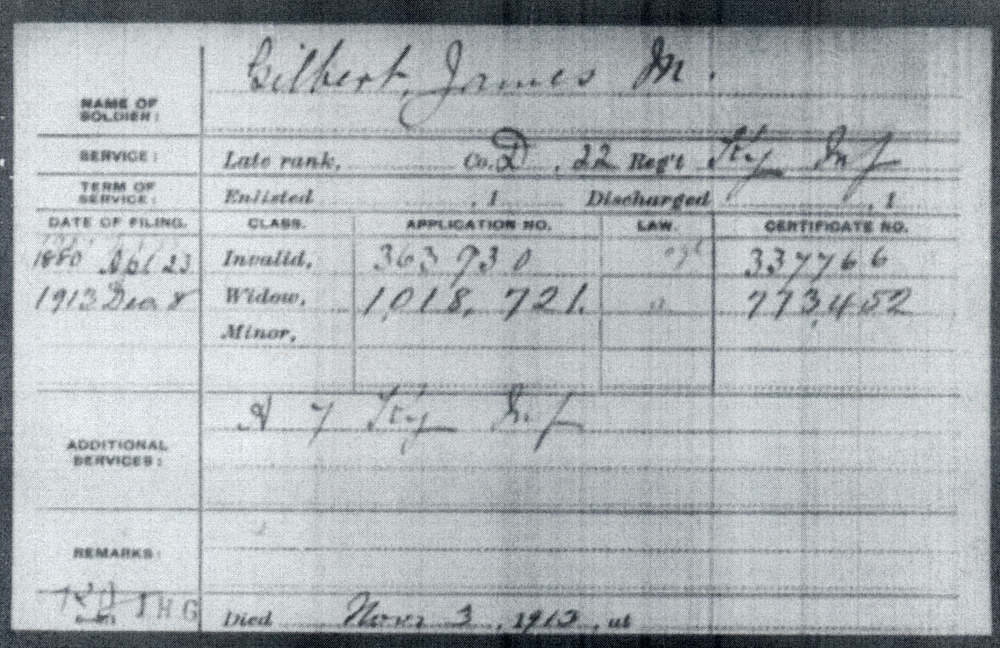 Gilbert, James M.
NAME OF
SOLDIER:
SERVICE: Late rank, Co. D, 22 Reg't Ky Inf
TERM OF
SERVICE: Enlisted , 1 Discharged , 1
DATE OF FILING. CLASS. APPLICATION NO. LAW. CERTIFICATE NO.
1880 Apl 23 Invalid, 363930 337766
1913 Dec 8 Widow, 1,018,721. 773,452
Minor,
A 7 Ky Inf
ADDITIONAL
SERVICES:
REMARKS:
Died Nov. 3, 1913, at